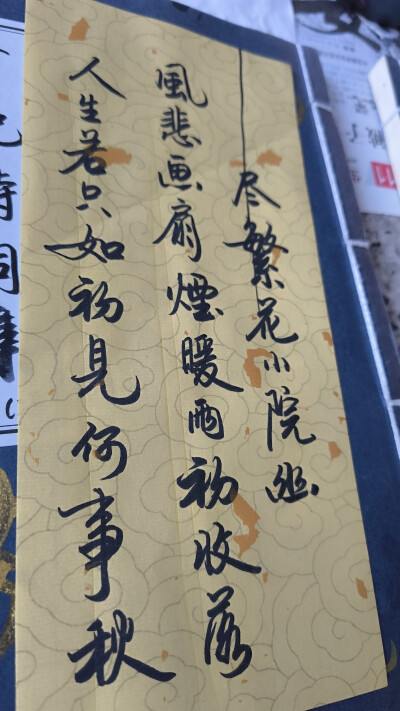 人生若只如初見何事秋
風悲画扇煙暖雨初收落
尽繁花小院幽